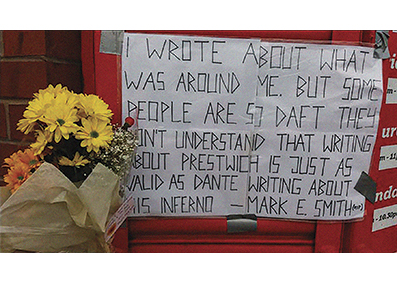 I WROTE ABOUT WHAT
WAS AROUND ME. BUT SOME
PEOPLE ARE SO DAFT THEY
DON'T UNDERSTAND THAT WRITING
ABOUT PRESTWICH IS JUST AS
VALID AS DANTE WRITING ABOUT
HIS INFERNO — MARK E. SMITH